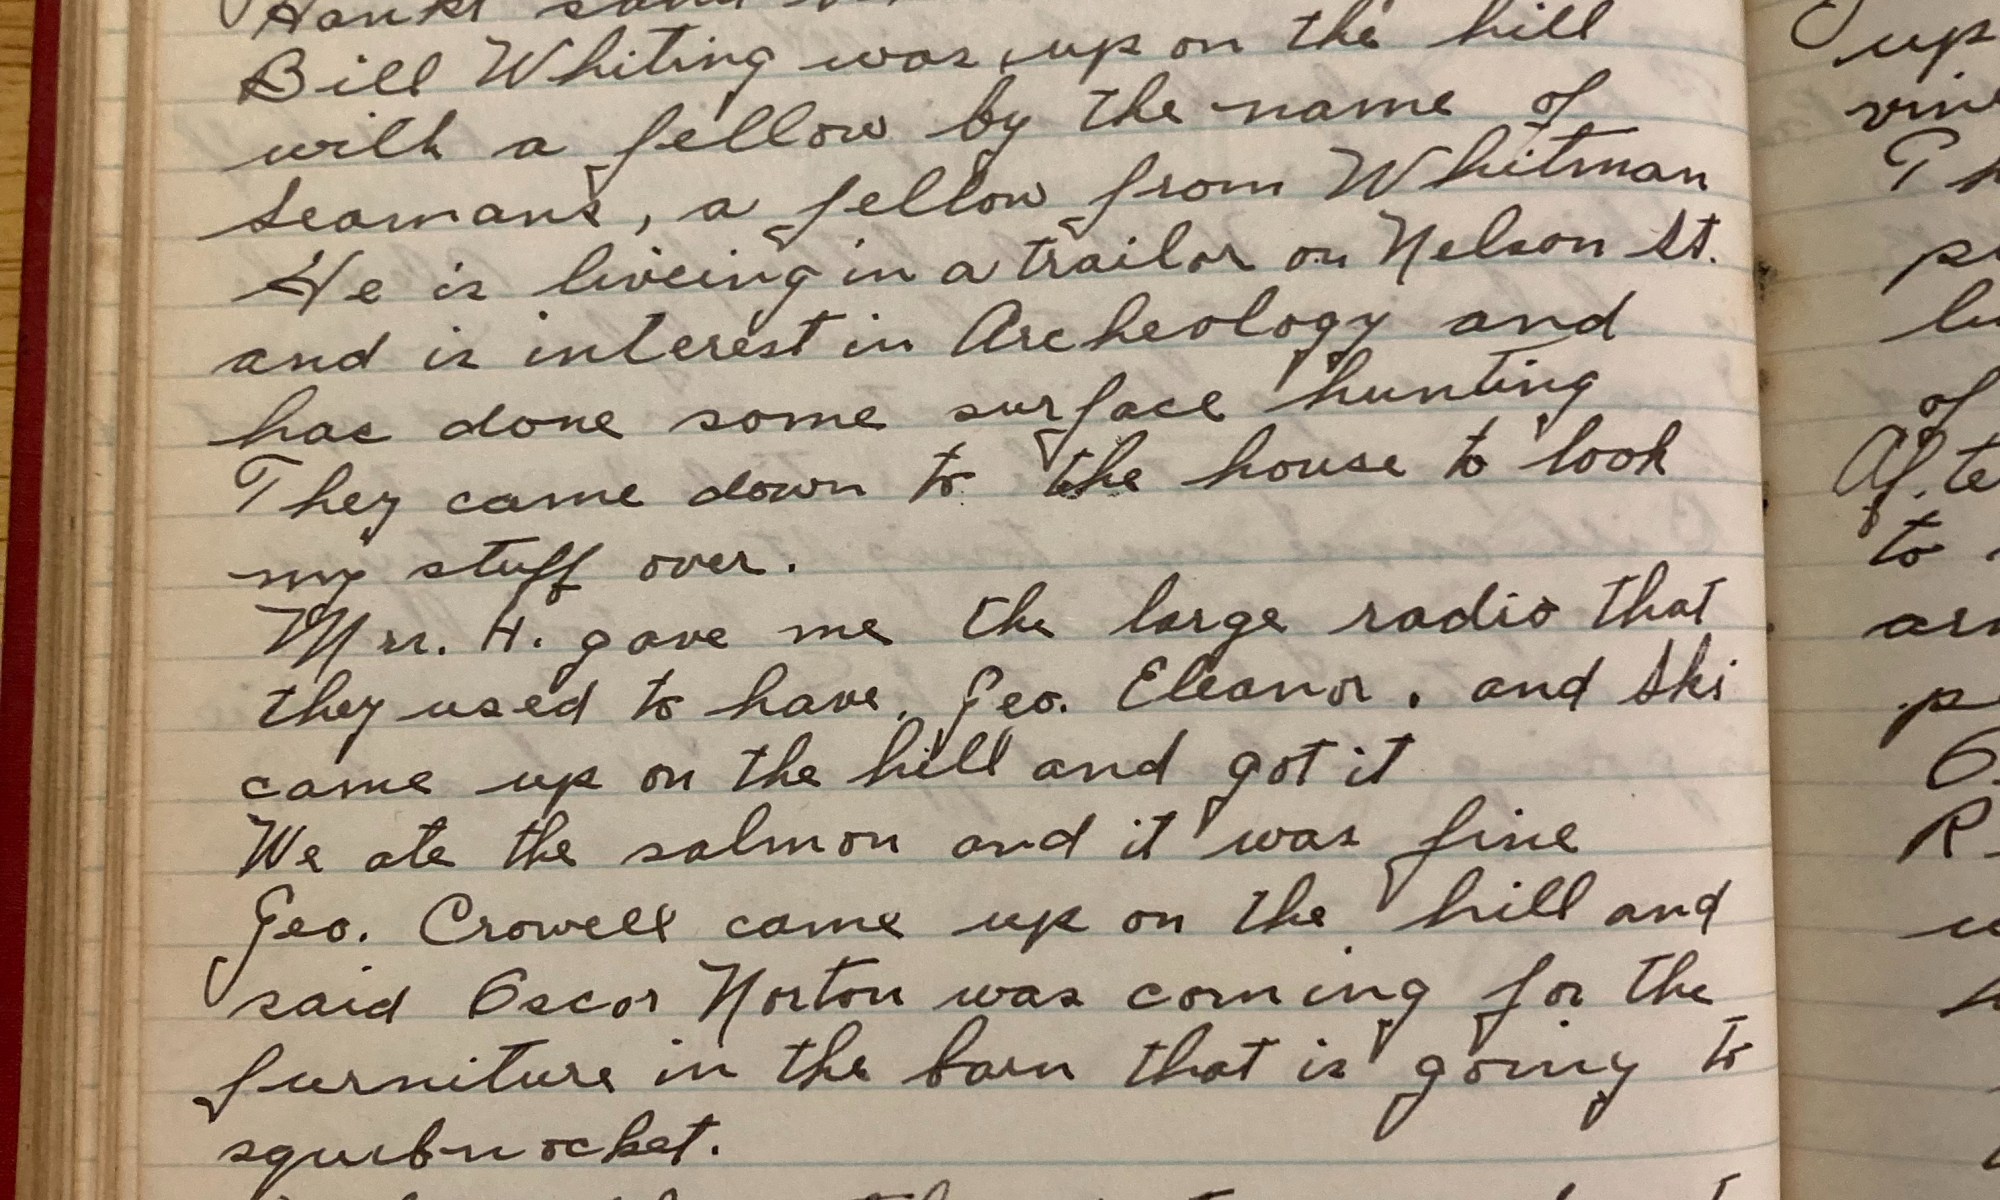 Bill Whiting was up on the hill
with a fellow by the name of
Seamans, a fellow from Whitman
He is liveing in a trailor on Nelson St.
and is interest in Archeology and
has done some surface hunting
They came down to the house to look
my stuff over.
Mrs. H. gave me the large radio that
they used to have, Geo. Eleanor, and Ski
came up on the hill and got it
We ate the salmon and it was fine
Geo. Crowell came up on the hill and
said Oscar Norton was coming for the
furniture in the barn that is going to
squibnocket.
up
of
to